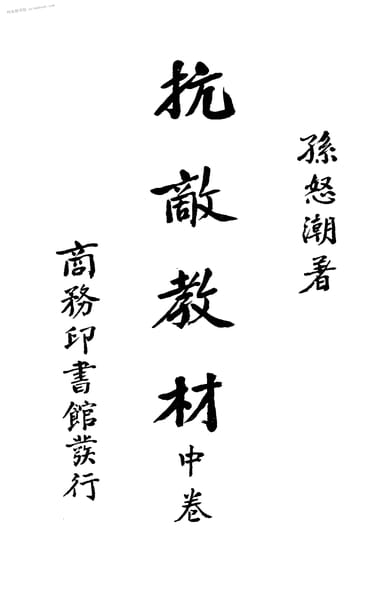 孫怒潮著
抗敵教材中卷
商務印書館發行